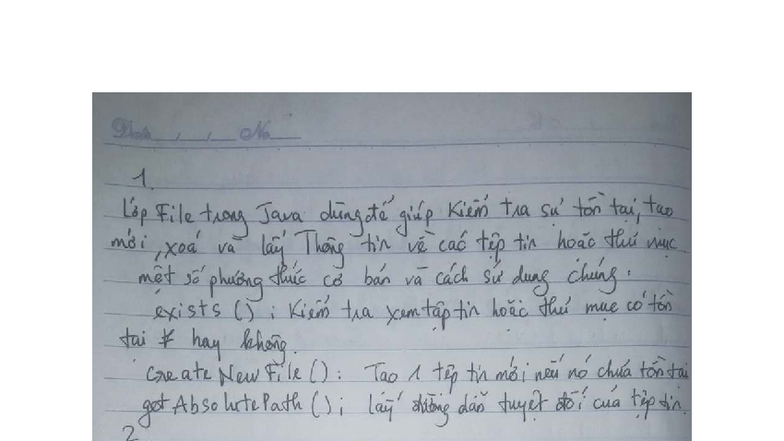 Date _ , _ , _ No _
1.
Lớp File trong Java dùng để giúp kiểm tra sự tồn tại, tạo
mới, xoá và lấy Thông tin về các tệp tin hoặc thư mục
một số phương thức cơ bản và cách sử dụng chúng.
exists () ; Kiểm tra xem tập tin hoặc thư mục có tồn
tại hay không.
Create New File () : Tạo 1 tệp tin mới nếu nó chưa tồn tại
get Absolute Path () ; lấy đường dẫn tuyệt đối của tệp tin.
2